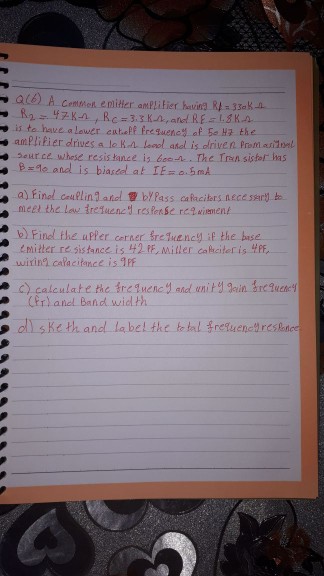 Q(6) A common emitter amplifier having R1 = 330K Ω
R2 = 47KΩ, RC = 3.3KΩ, and RE = 1.8KΩ
is to have a lower cutoff frequency of 50 Hz the
amplifier drives a 10 KΩ Load and is driven from a signal
source whose resistance is 600Ω. The Transistor has
B=90 and is biased at IE=0.5mA
a) Find coupling and bypass capacitors necessary to
meet the low frequency response requirment
b) Find the upper corner frequency if the base
emitter resistance is 42 PF, Miller capacitor is 4PF,
wiring capacitance is 9PF
c) calculate the frequency and unity gain frequency
(fr) and Band width
d) sketh and label the total frequency responce